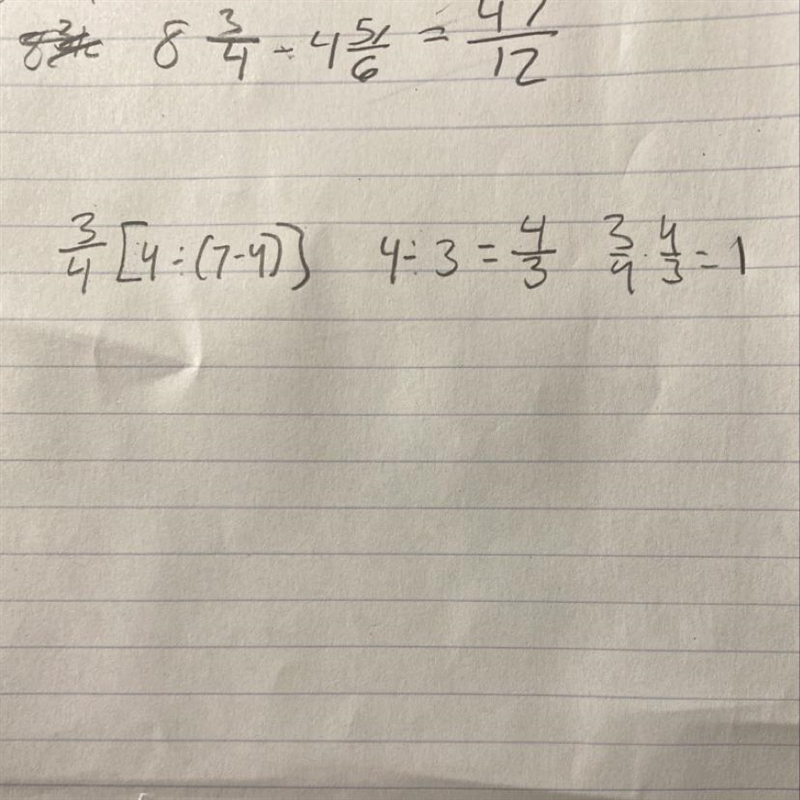 8 3/4 - 4 5/6 = 47/12
3/4 [4 ÷ (7-4)] 4 ÷ 3 = 4/3 3/4 · 4/3 = 1